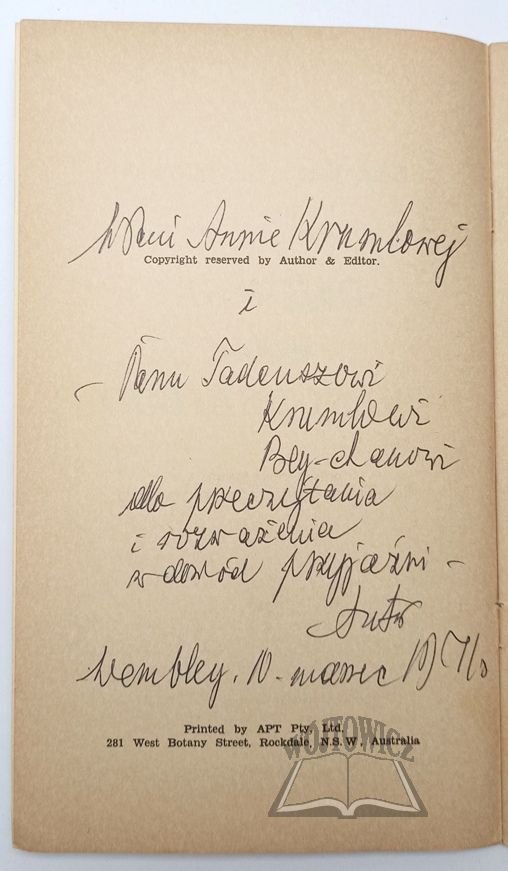 Pani Annie Krumlowej
Copyright reserved by Author & Editor.
i
Panu Tadeuszowi
Krumlowi
Bey-chanowi
do przeczytania
i rozważenia
w dowód przyjaźni -
Autor
Wembley, 10. marzec
Printed by APT Pty. Ltd.
281 West Botany Street, Rockdale, N.S.W., Australia
WÓJTOWICZ